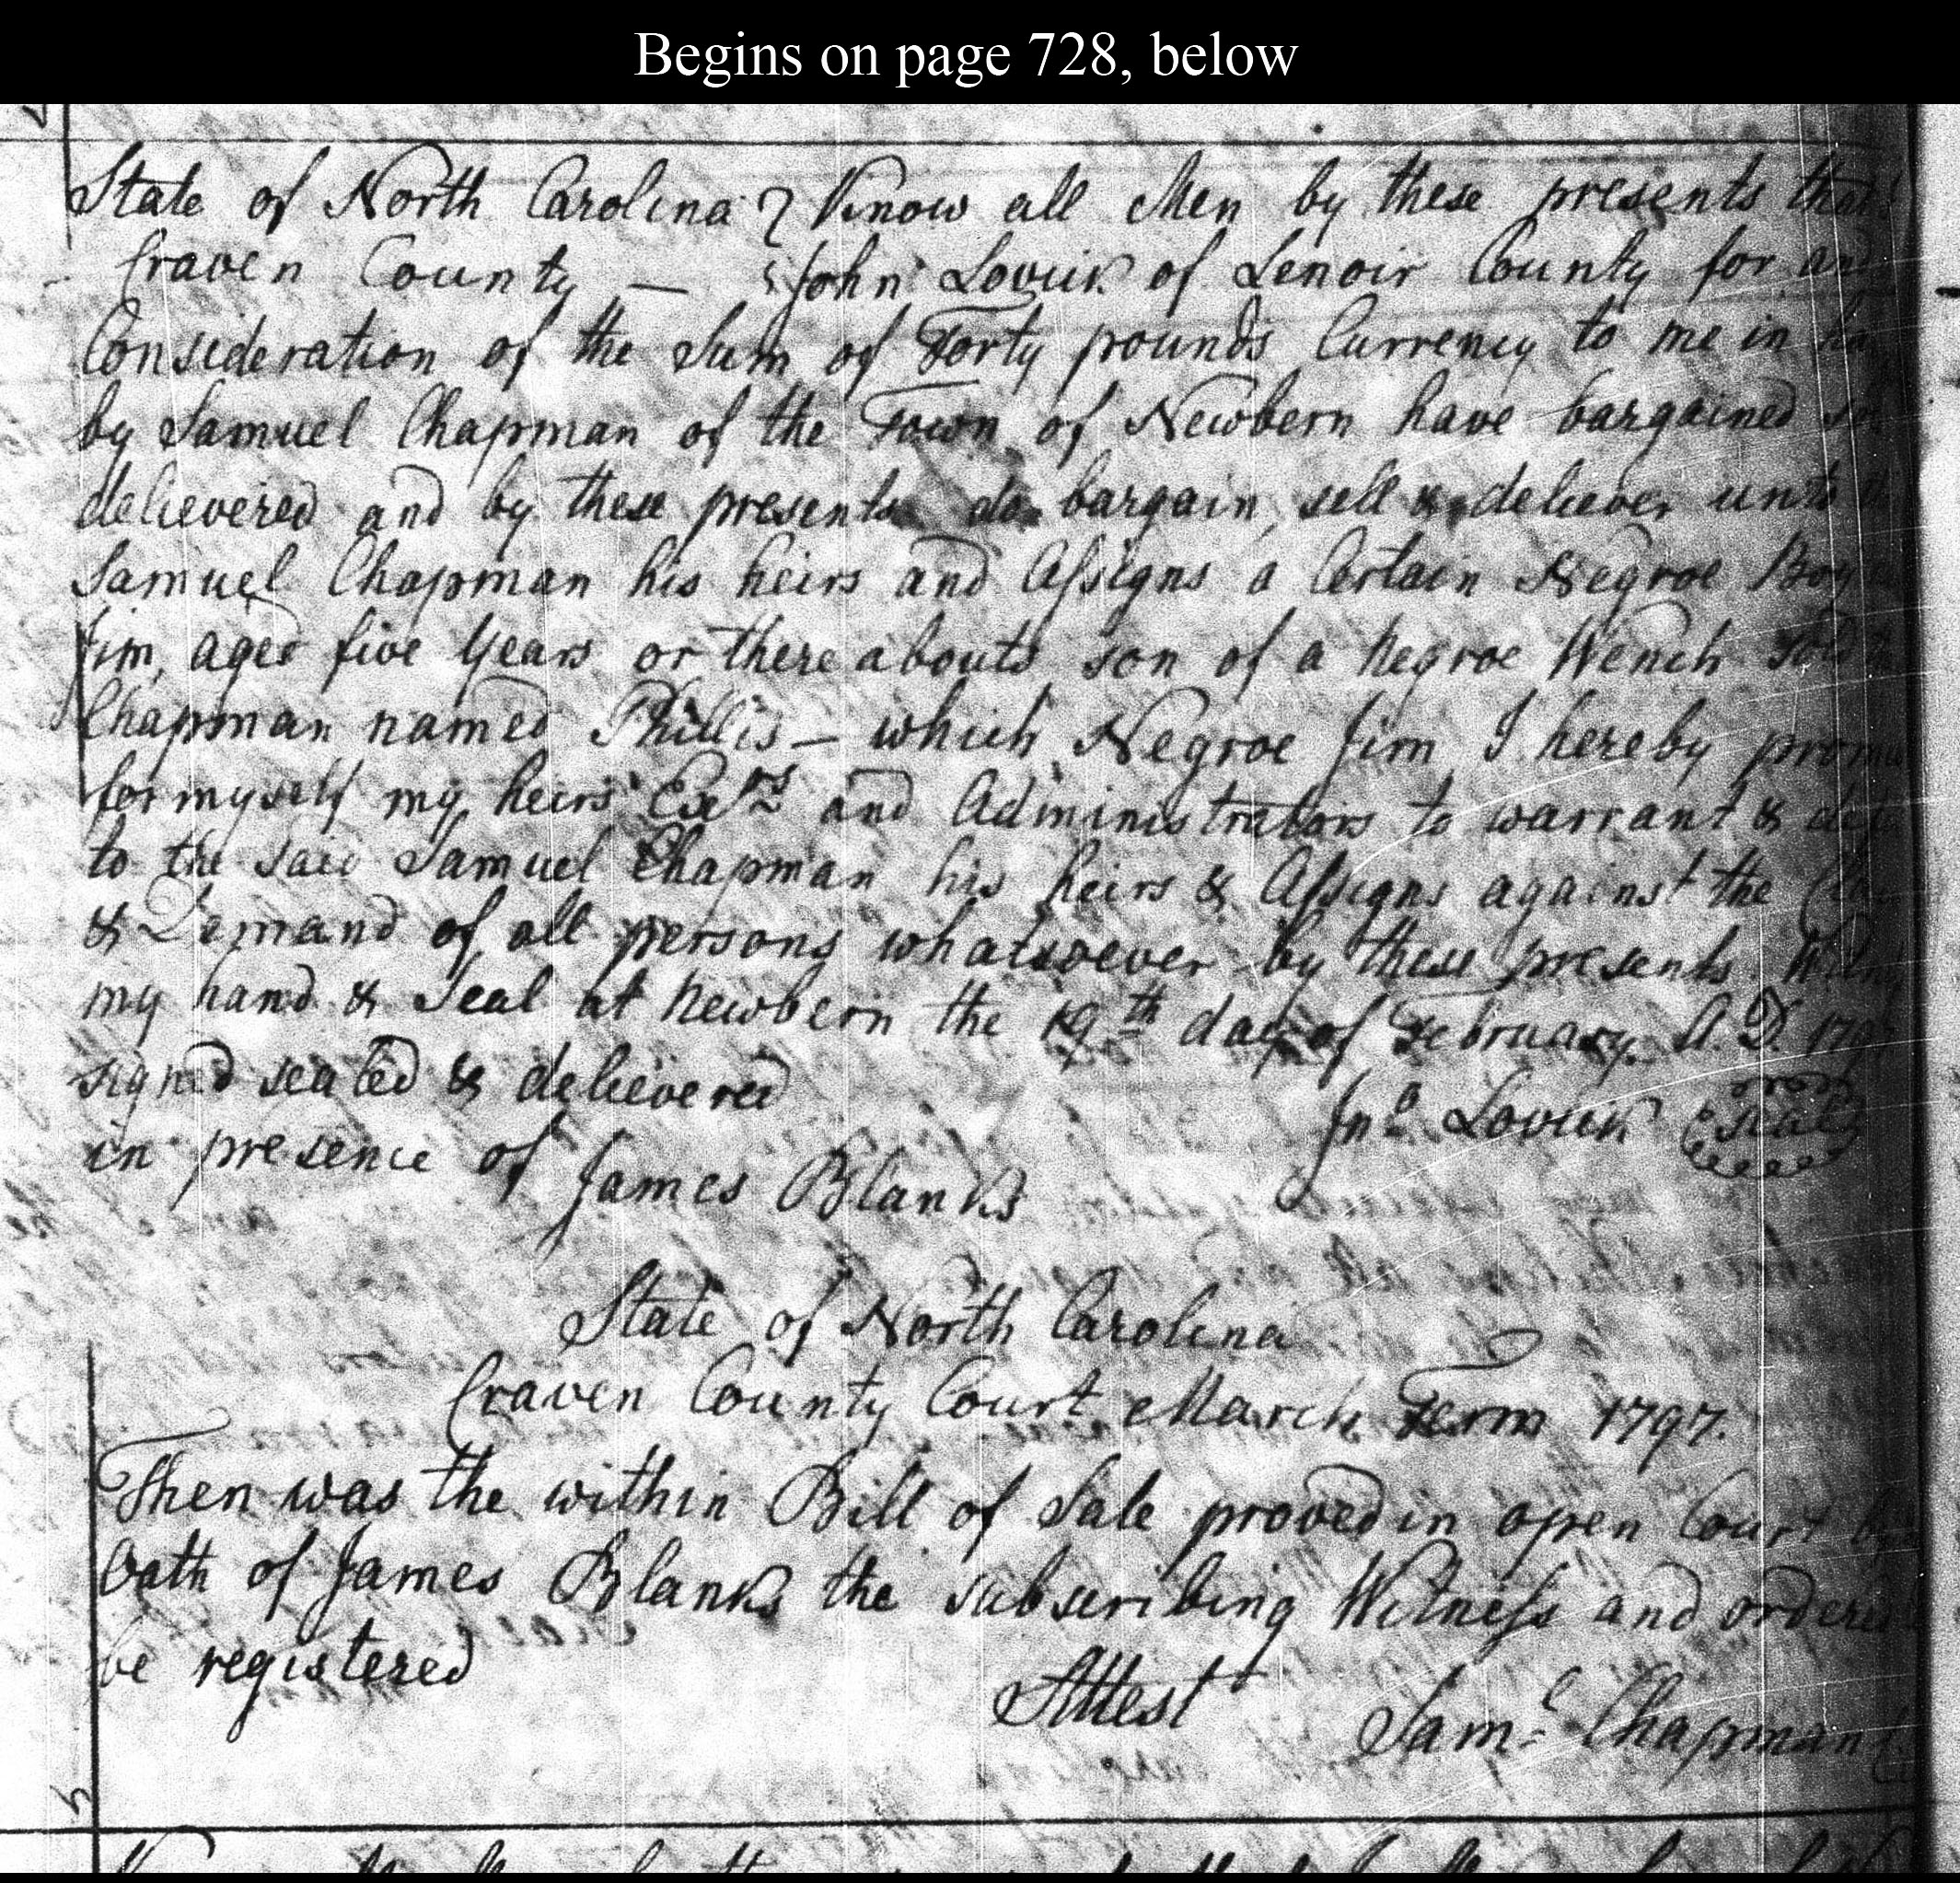 Begins on page 728, below
State of North Carolina } Know all Men by these presents that
Craven County — } John Lovick of Lenoir County for and
Consideration of the Sum of Forty pounds Currency to me in
by Samuel Chapman of the Town of Newbern have bargained
delievered and by these presents do bargain, sell & deliever unto
Samuel Chapman his heirs and Assigns a Certain Negroe Boy
Jim, aged five Years or there abouts son of a Negroe Wench sold
Chapman named Phillis — which Negroe Jim I hereby
for myself my heirs Exrs and Administrators to warrant &
to the said Samuel Chapman his heirs & Assigns against the
& Demand of all persons whatsoever by these presents
my hand & Seal at Newbern the 19th day of February A.D. 1797
signed sealed & delievered
Jno Lovick seal
in presence of
James Blanks
State of North Carolina
Craven County Court March Term 1797.
Then was the within Bill of Sale proved in open Court by
Oath of James Blanks the subscribing Witness and
be registered
Attest
Saml Chapman